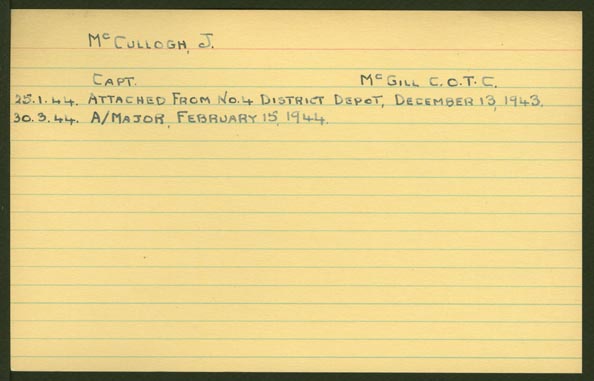 McCULLOGH, J.
CAPT. McGILL C.O.T.C.
25.1.44. ATTACHED FROM No.4 DISTRICT DEPOT, DECEMBER 13, 1943.
30.3.44. A/MAJOR, FEBRUARY 15, 1944.